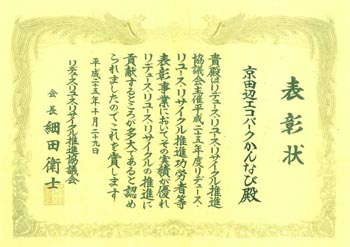 表彰状
京田辺エコパークかんなび殿
貴殿はリデュース・リユース・リサイクル推進
協議会主催平成二十五年度リデュース・
リユース・リサイクル推進功労者等
表彰事業においてその実績が優れ
リデュース・リユース・リサイクルの推進に
貢献するところが多大であると認め
られましたのでこれを賞します
平成二十五年十月二十九日
リデュース・リユース・リサイクル推進協議会
会長 細田衛士